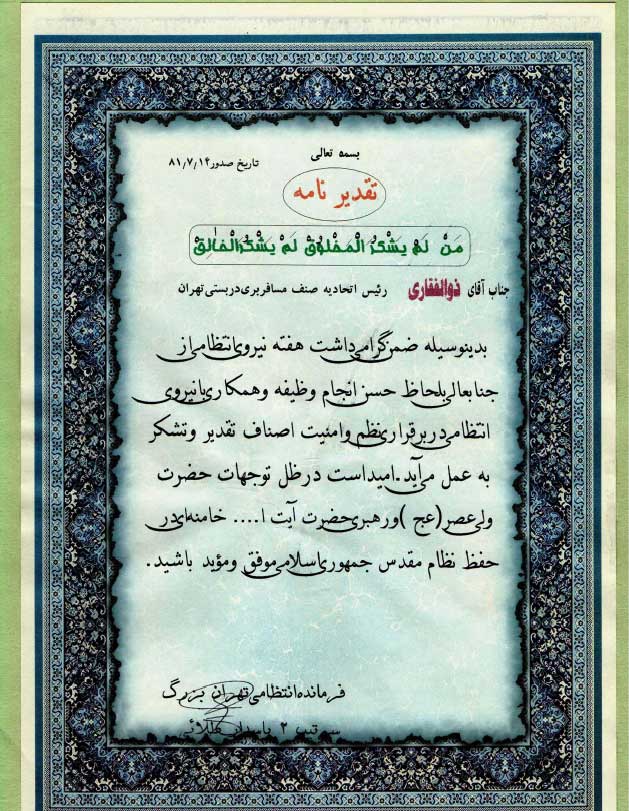 بسمه تعالی
تاریخ صدور ۸۱/۷/۱۴
تقدیر نامه
مَنْ لَمْ یَشْکُرُ الْمَخْلُوقْ لَمْ یَشْکُرُ الْخالِقْ
جناب آقای ذوالفقاری رئیس اتحادیه صنف مسافربری دربستی تهران
بدینوسیله ضمن گرامی داشت هفته نیروی انتظامی از
جنابعالی بلحاظ حسن انجام وظیفه وهمکاری با نیروی
انتظامی در برقراری نظم وامنیت اصناف تقدیر وتشکر
به عمل می آید. امید است در ظل توجهات حضرت
ولی عصر (عج) ورهبری حضرت آیت ا.... خامنه ای در
حفظ نظام مقدس جمهوری اسلامی موفق ومؤید باشید.
فرمانده انتظامی تهران بزرگ
سرتیپ ۲ پاسدار طلائی